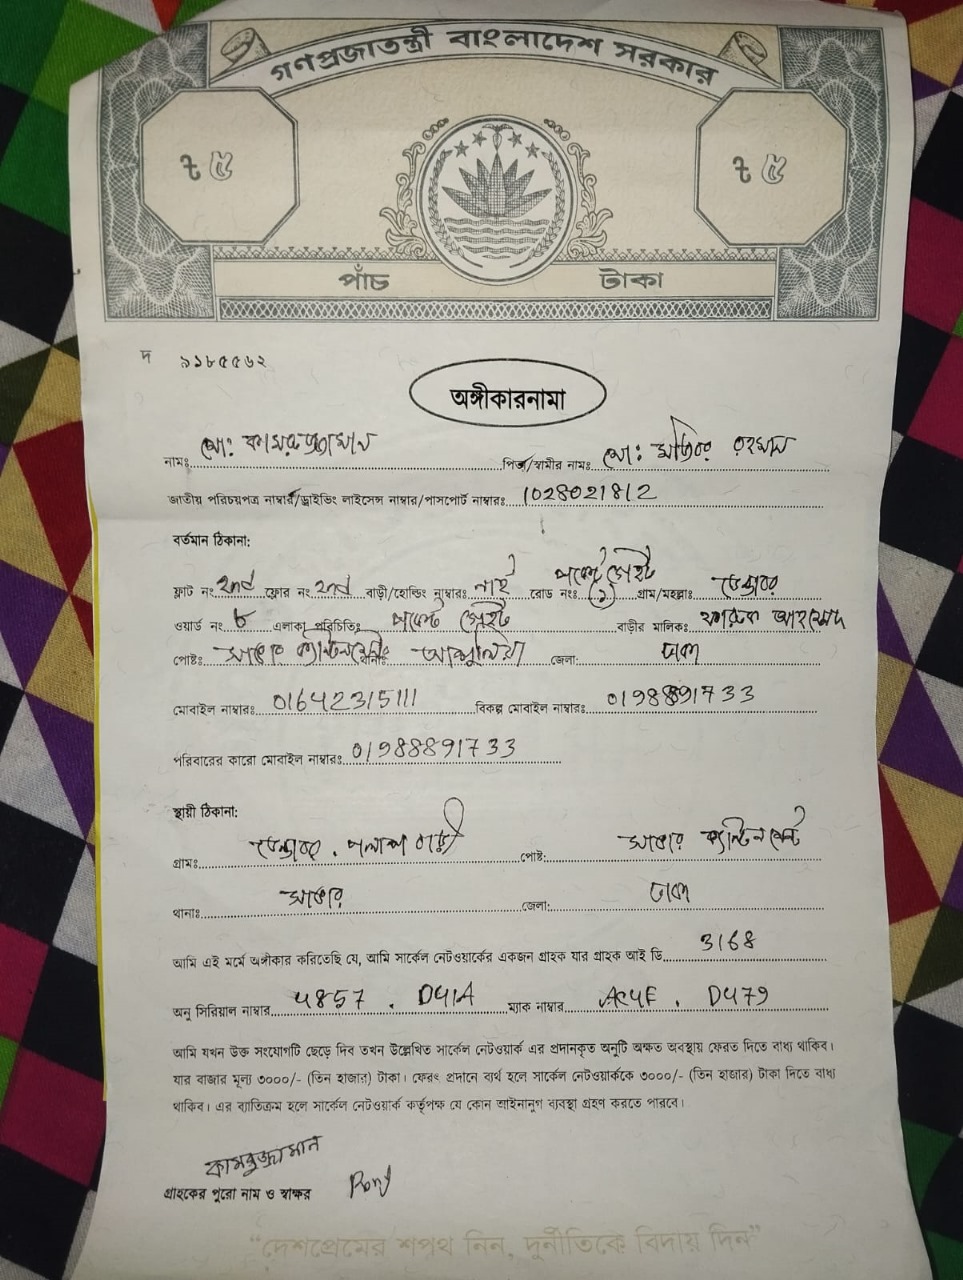 গণপ্রজাতন্ত্রী বাংলাদেশ সরকার
৳ ৫ ৳ ৫
পাঁচ টাকা
দ ৯১৮৫৫৬২
অঙ্গীকারনামা
নামঃ মো: কামরুজ্জামান পিতা/স্বামীর নামঃ মো: মতিবর রহমান
জাতীয় পরিচয়পত্র নাম্বার/ড্রাইভিং লাইসেন্স নাম্বার/পাসপোর্ট নাম্বারঃ 1028021812
বর্তমান ঠিকানা:
ফ্লাট নং ফ্লোর নং বাড়ী/হোল্ডিং নাম্বারঃ নাই রোড নংঃ পকেট গেইট গ্রাম/মহল্লাঃ
ওয়ার্ড নং ৮ এলাকা পরিচিতিঃ পকেট গেইট বাড়ীর মালিকঃ আহমেদ
পোষ্টঃ সাভার ক্যান্টনমেন্ট আশুলিয়া জেলা: ঢাকা
মোবাইল নাম্বারঃ 01642315111 বিকল্প মোবাইল নাম্বারঃ 01988891733
পরিবারের কারো মোবাইল নাম্বারঃ 01988891733
স্থায়ী ঠিকানা:
গ্রামঃ পলাশ বাড়ী পোষ্ট: সাভার ক্যান্টনমেন্ট
থানাঃ সাভার জেলা: ঢাকা
আমি এই মর্মে অঙ্গীকার করিতেছি যে, আমি সার্কেল নেটওয়ার্কের একজন গ্রাহক যার গ্রাহক আই ডি 3168
অনু সিরিয়াল নাম্বার 4857 . D41A ম্যাক নাম্বার AC4E . D479
আমি যখন উক্ত সংযোগটি ছেড়ে দিব তখন উল্লেখিত সার্কেল নেটওয়ার্ক এর প্রদানকৃত অনুটি অক্ষত অবস্থায় ফেরত দিতে বাধ্য থাকিব।
যার বাজার মূল্য ৩০০০/- (তিন হাজার) টাকা। ফেরৎ প্রদানে ব্যর্থ হলে সার্কেল নেটওয়ার্ককে ৩০০০/- (তিন হাজার) টাকা দিতে বাধ্য
থাকিব। এর ব্যতিক্রম হলে সার্কেল নেটওয়ার্ক কর্তৃপক্ষ যে কোন আইনানুগ ব্যবস্থা গ্রহণ করতে পারবে।
কামরুজ্জামান
গ্রাহকের পুরো নাম ও স্বাক্ষর Rony
"দেশপ্রেমের শপথ নিন, দুর্নীতিকে বিদায় দিন"